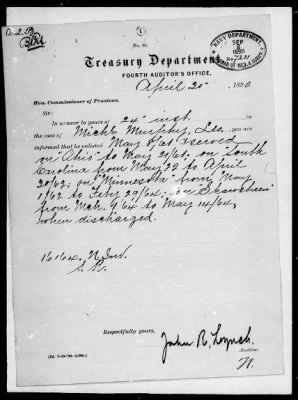 No. 46.
Treasury Department,
FOURTH AUDITOR'S OFFICE,
April 25 1890.
NAVY DEPARTMENT
SEP
1890
Hon. Commissioner of Pensions.
Sir:
In answer to yours of 24" inst. in
the case of Mich'l Murphy, Lds., you are
informed that he enlisted May 8/61 & served
on "Ohio" to May 21/61. on "South
Carolina" from May 22 to April
20/62, on "Minnesota" from May
1/62 to Feb'y 29/64. on "Shawsheen"
from Mch. 9/64 to May 14/64,
when discharged.
16164.
Respectfully yours,
John R. Lynch.
Auditor.